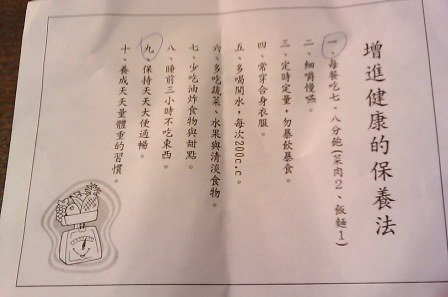 增進健康的保養法
一、每餐吃七、八分飽(菜肉2、飯麵1)
二、細嚼慢嚥。
三、定時定量，勿暴飲暴食。
四、常穿合身衣服。
五、多喝開水，每次200c.c.。
六、多吃蔬菜、水果與清淡食物。
七、少吃油炸食物與甜點。
八、睡前三小時不吃東西。
九、保持天天大便通暢。
十、養成天天量體重的習慣。